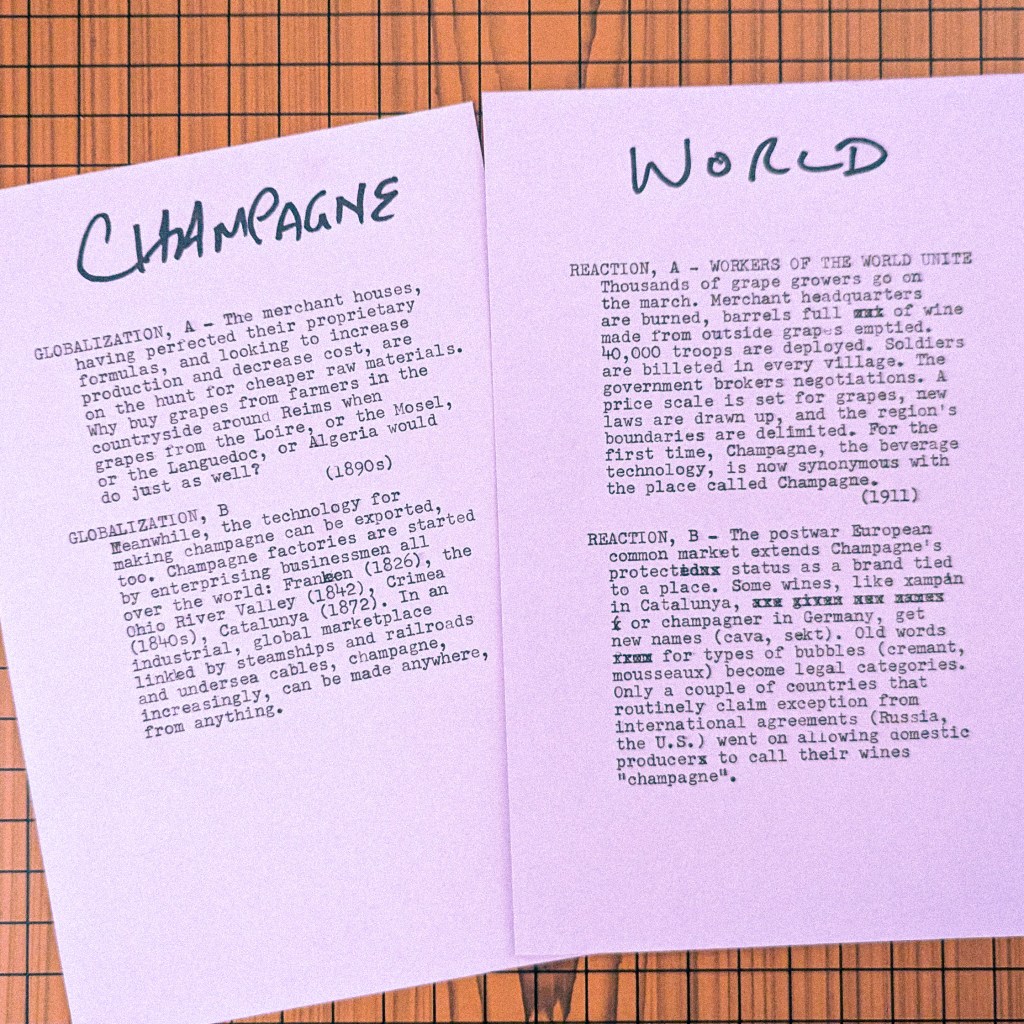 CHAMPAGNE
GLOBALIZATION, A - The merchant houses,
having perfected their proprietary
formulas, and looking to increase
production and decrease cost, are
on the hunt for cheaper raw materials.
Why buy grapes from farmers in the
countryside around Reims when
grapes from the Loire, or the Mosel,
or the Languedoc, or Algeria would
do just as well?
(1890s)
GLOBALIZATION, B
Meanwhile, the technology for
making champagne can be exported,
too. Champagne factories are started
by enterprising businessmen all
over the world: Franken (1826), the
Ohio River Valley (1842), Crimea
(1840s), Catalunya (1872). In an
industrial, global marketplace
linked by steamships and railroads
and undersea cables, champagne,
increasingly, can be made anywhere,
from anything.
WORLD
REACTION, A - WORKERS OF THE WORLD UNITE
Thousands of grape growers go on
the march. Merchant headquarters
are burned, barrels full of wine
made from outside grapes emptied.
40,000 troops are deployed. Soldiers
are billeted in every village. The
government brokers negotiations. A
price scale is set for grapes, new
laws are drawn up, and the region's
boundaries are delimited. For the
first time, Champagne, the beverage
technology, is now synonymous with
the place called Champagne.
(1911)
REACTION, B - The postwar European
common market extends Champagne's
protected status as a brand tied
to a place. Some wines, like xampán
in Catalunya,
or champagner in Germany, get
new names (cava, sekt). Old words
for types of bubbles (cremant,
mousseaux) become legal categories.
Only a couple of countries that
routinely claim exception from
international agreements (Russia,
the U.S.) went on allowing domestic
producers to call their wines
"champagne".